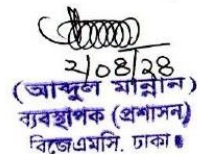 ২/০৪/২৪
(আব্দুল মান্নান)
ব্যবস্থাপক (প্রশাসন)
বিজেএমসি. ঢাকা।